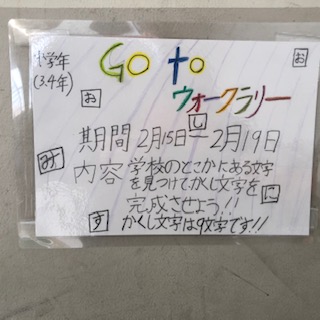 小学年
(3.4年)
Go to
お
お
ウォークラリー
し
期間 2月15日―2月19日
み
内容 学校のどこかにある文字
を見つけてかくし文字を
に
完成させよう!!
す
かくし文字は9文字です!!